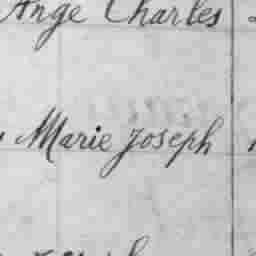 Ange Charles
Marie Joseph